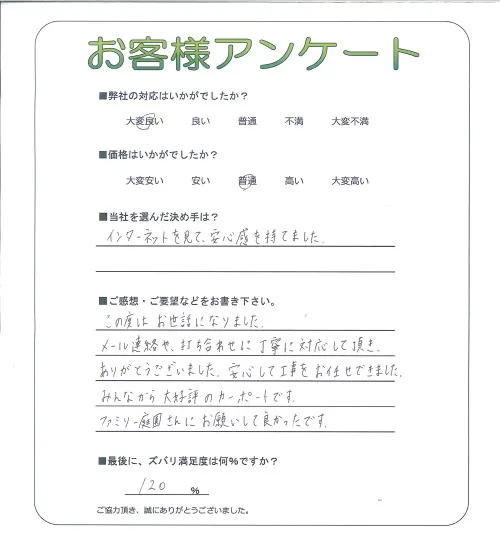 お客様アンケート
■弊社の対応はいかがでしたか？
大変良い 良い 普通 不満 大変不満
■価格はいかがでしたか？
大変安い 安い 普通 高い 大変高い
■当社を選んだ決め手は？
インターネットを見て、安心感を持てました。
■ご感想・ご要望などをお書き下さい。
この度はお世話になりました。
メール連絡や、打ち合わせに丁寧に対応して頂き、
ありがとうございました。安心して工事をお任せできました。
みんなから大好評のカーポートです。
ファミリー庭園さんにお願いして良かったです。
■最後に、ズバリ満足度は何%ですか？
120 %
ご協力頂き、誠にありがとうございました。